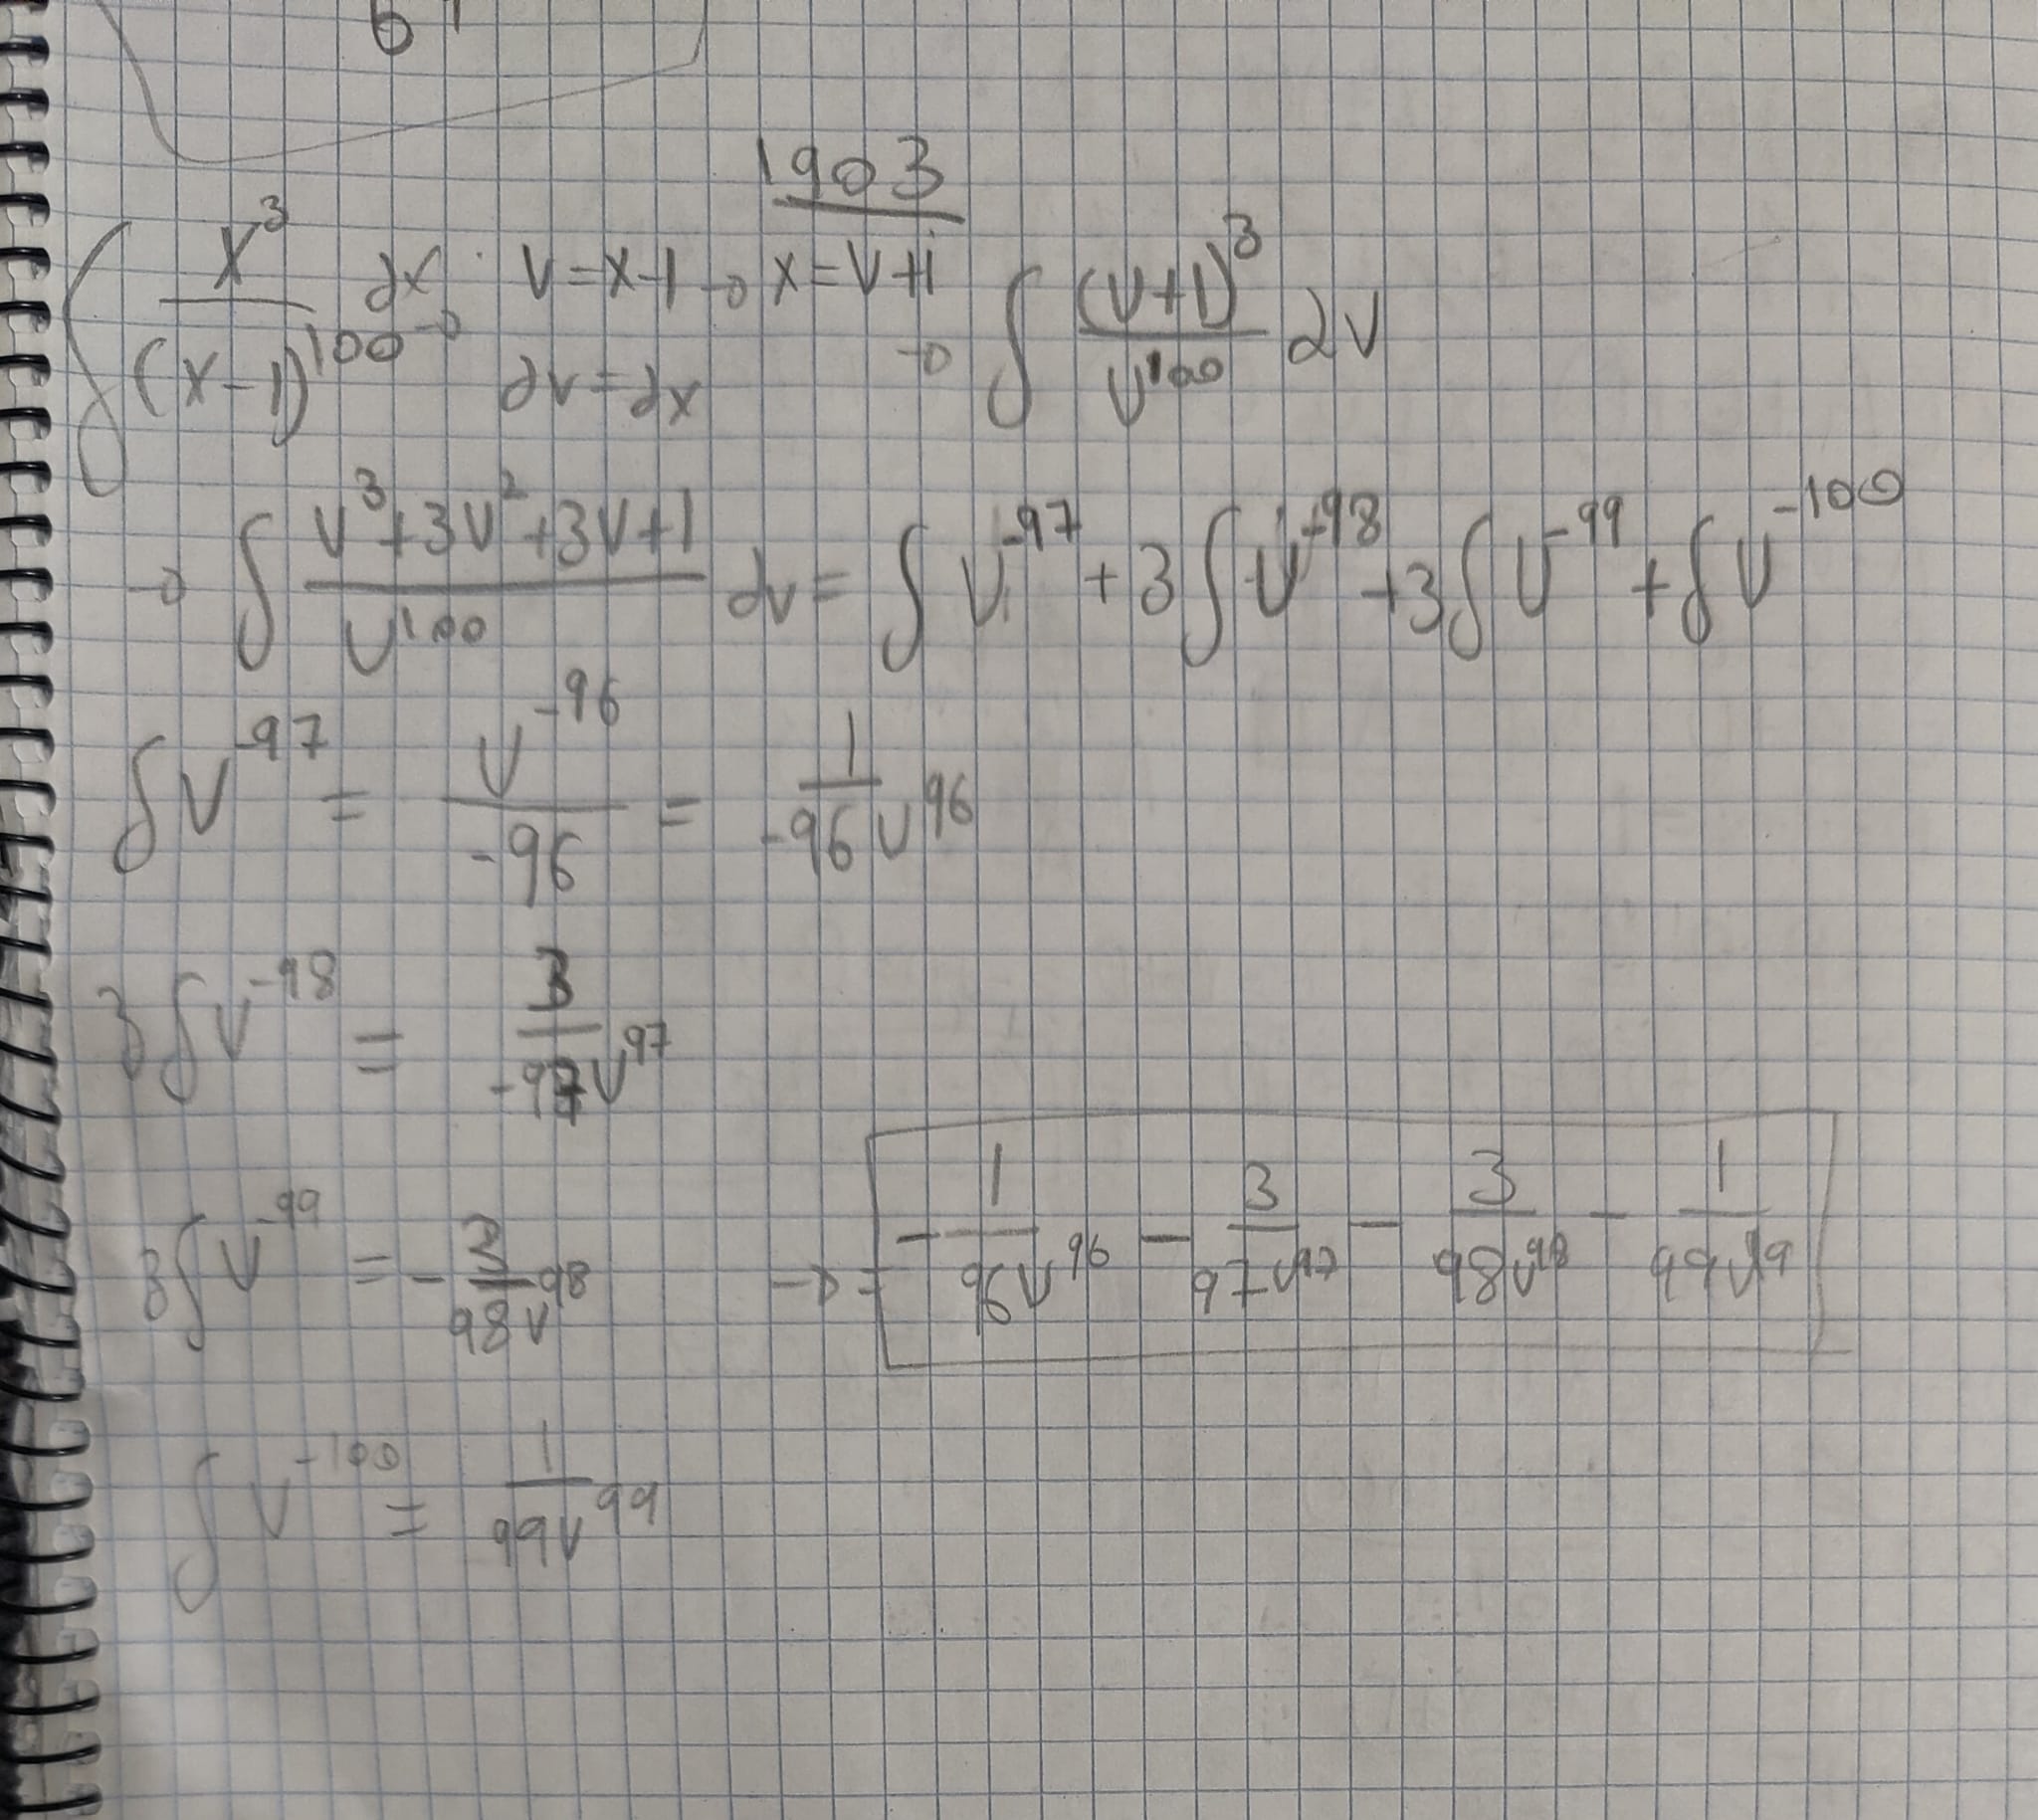 6
1903
∫ x³/(x-1)¹⁰⁰ dx → v=x-1 → x=v+1 → ∫ (v+1)³/v¹⁰⁰ dv
dv=dx
→ ∫ (v³+3v²+3v+1)/v¹⁰⁰ dv = ∫ v⁻⁹⁷ + 3∫ v⁻⁹⁸ + 3∫ v⁻⁹⁹ + ∫ v⁻¹⁰⁰
∫ v⁻⁹⁷ = v⁻⁹⁶/-96 = 1/-96v⁹⁶
3∫ v⁻⁹⁸ = 3/-97v⁹⁷
3∫ v⁻⁹⁹ = - 3/98v⁹⁸ → = - 1/96v⁹⁶ - 3/97v⁹⁷ - 3/98v⁹⁸ - 1/99v⁹⁹
∫ v⁻¹⁰⁰ = 1/99v⁹⁹